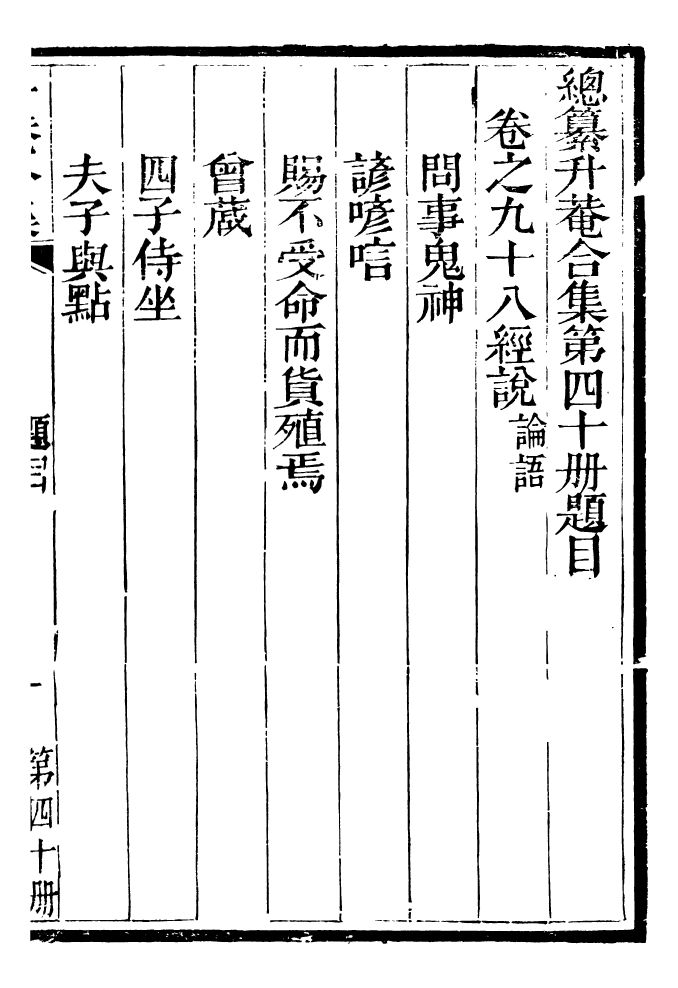 總纂升菴合集第四十册題目
卷之九十八經說 論語
問事鬼神
諺喭唁
賜不受命而貨殖焉
曾蒧
四子侍坐
夫子與點
題目
一
第四十册